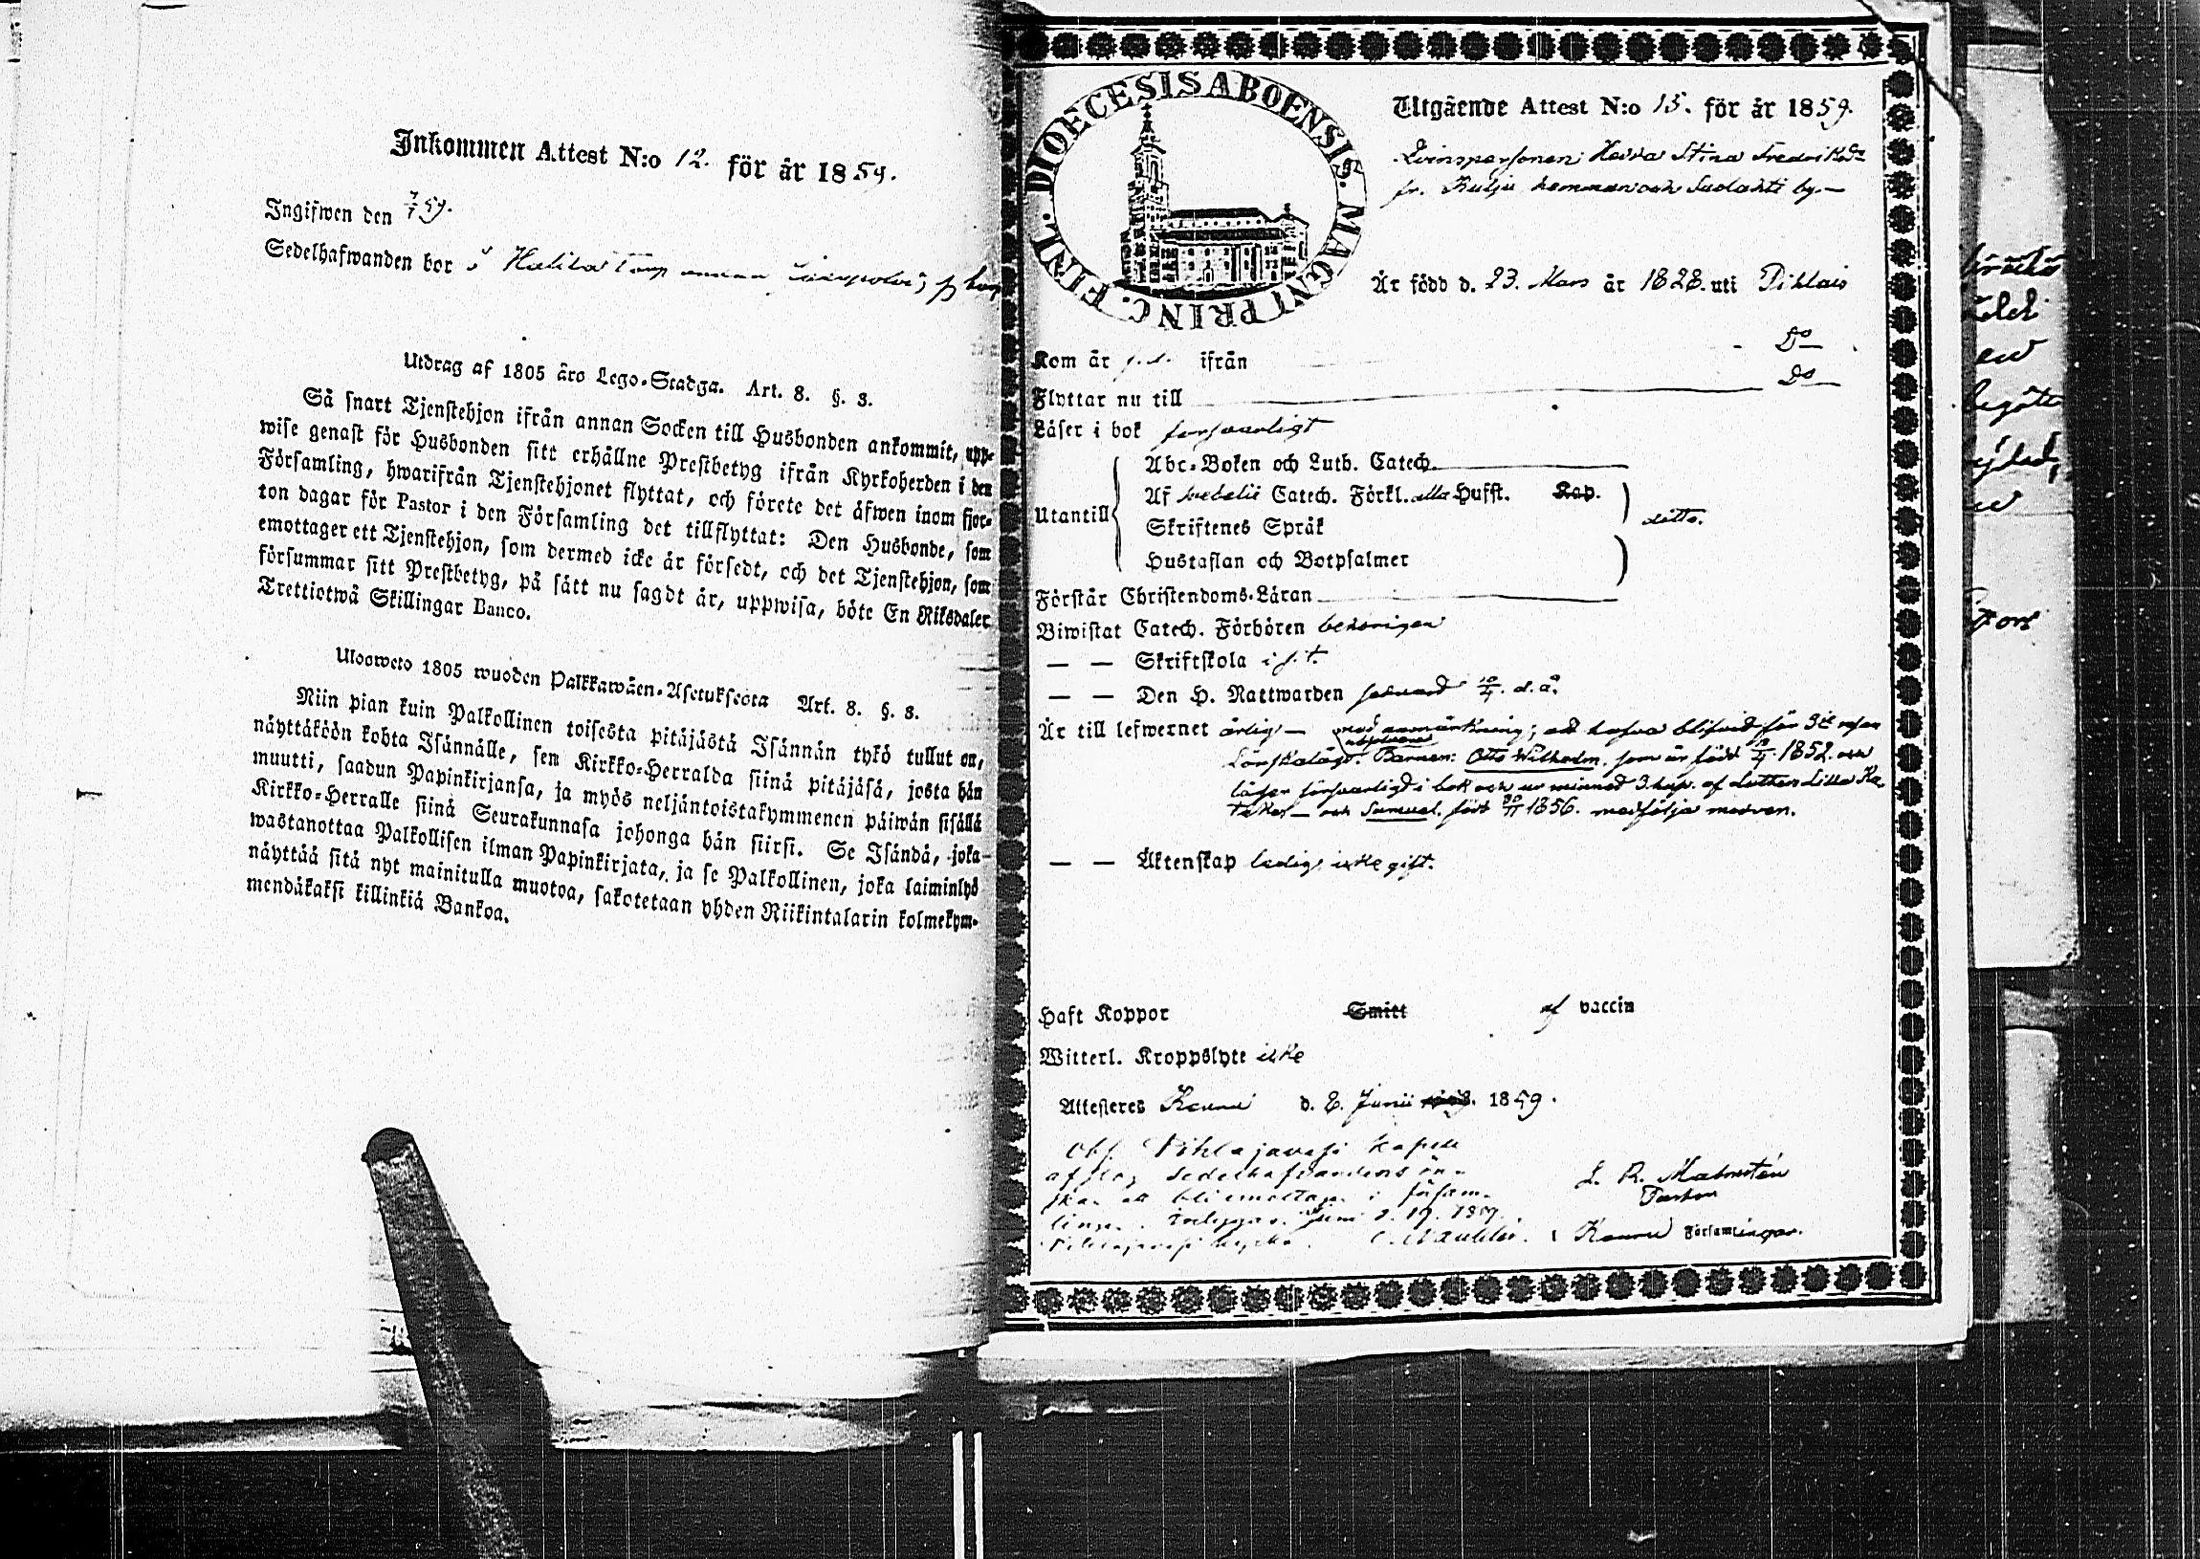 Inkommen Attest N:o 12. för år 1859.
Ingifwen den 7/7 59.
Sedelhafwanden bor i torp
Utdrag af 1805 års Lego-Stadga. Art. 8. §. 3.
Så snart Tjenstehjon ifrån annan Socken till Husbonden ankommit, upp-
wise genast för Husbonden sitt erhållne Prestbetyg ifrån Kyrkoherden i den
Församling, hwarifrån Tjenstehjonet flyttat, och förete det äfwen inom fjor-
ton dagar för Pastor i den Församling det tillflyttat: Den Husbonde, som
emottager ett Tjenstehjon, som dermed icke är försedt, och det Tjenstehjon, som
försummar sitt Prestbetyg, på sätt nu sagdt är, uppwisa, böte En Riksdaler
Trettiotwå Skillingar Banco.
Ulosweto 1805 wuoden Palkkawäen-Asetuksesta Art. 8. §. 3.
Niin pian kuin Palkollinen toisesta pitäjästä Isännän tykö tullut on,
näyttäköön kohta Isännälle, sen Kirkko-Herralda siinä pitäjäsä, josta hän
muutti, saadun Papinkirjansa, ja myös neljäntoistakymmenen päiwän sisällä
Kirkko-Herralle siinä Seurakunnasa johonga hän siirsi. Se Isändä, joka
wastanottaa Palkollisen ilman Papinkirjata, ja se Palkollinen, joka laiminlyö
näyttää sitä nyt mainitulla muotoa, sakotetaan yhden Riikintalarin kolmekym-
mendäkaksi killinkiä Bankoa.
FINL. DIOECESIS ABOENSIS. MAGNI PRINC.
Utgående Attest N:o 15. för år 1859.
Qvinspersonen Hedda Stina Fredriksdr
fr. hemman och Suolahti by
År född d. 23. Mars år 1828. uti Pihlais
Kom år ifrån Do
Flyttar nu till Do
Läser i bok försvarligt
Utantill
Abc-Boken och Luth. Catech.
Af Svebelii Catech. Förkl. alla Hufst. Kap.
Skriftenes Språk ditto.
Hustaflan och Botpsalmer
Förstår Christendoms-Läran
Biwistat Catech. Förhören behörigen
— — Skriftskola
— — Den H. Nattwarden senast 10/4 d.å.
Är till lefwernet ärlig — med anmärkning; att hafva blifvit för 3dje resan
absolverad
Lönskaläge. Barnen: Otto Wilhelm, som är född 1852. och
läser försvarligt i bok och ur minnet 3. hufv. af Luthers Lilla Ka-
tekes — och Samuel, född 1856. medfölja modren.
— — Äktenskap ledig, icke gift.
Haft Koppor Smitt af vaccin
Witterl. Kroppslyte icke
Attesteres d. 8. Junii 1859.
Obs. Pihlajavesi kapell
afslog Sedelhafvandens ön-
skan att bli emottagen i försam-
lingen. Juni d. 19. 1859.
Pihlajavesi kyrka.
Malmstén
Pastor
i Församlingar.